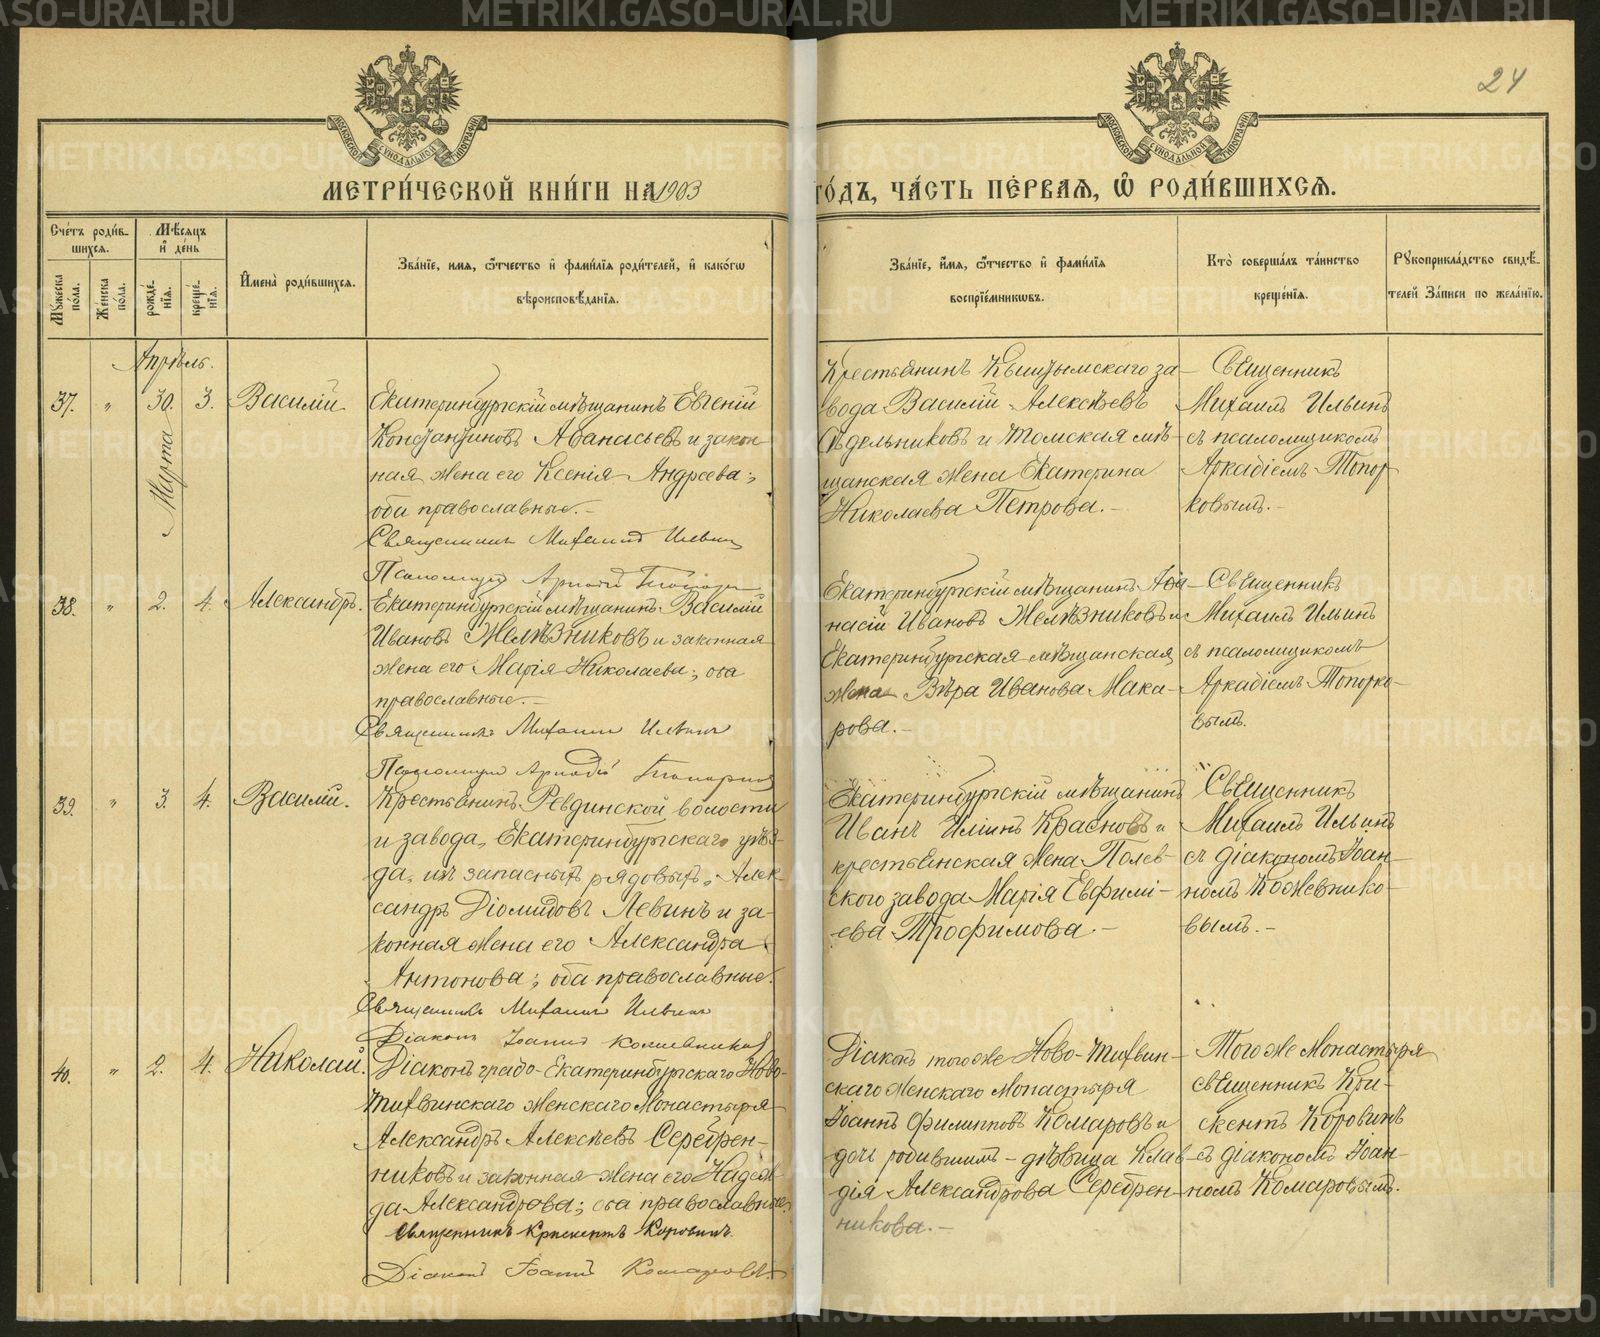 24
МЕТРИ́ЧЕСКОЙ КНИ́ГИ НА 1903 ГО́ДЪ, ЧА́СТЬ ПЕ́РВАѦ, Ѽ РОДИ́ВШИХСѦ.
Сче́тъ роди́вшихсѧ.
Мѣ́сѧцъ и де́нь
Мꙋ́жеска по́ла.
Же́нска по́ла.
рожде́нїѧ.
креще́нїѧ.
Имена̀ роди́вшихсѧ.
Зва́нїе, имѧ, ѻ҆́тчество и фами́лїѧ роди́телей, и како́гѡ
вѣроисповѣ́данїѧ.
Зва́нїе, и҆́мѧ, ѻ҆́тчество и фами́лїѧ
воспрїе́мникѡвъ.
Кто̀ соверша́лъ та́инство
креще́нїѧ.
Рꙋкоприкла́дство свидѣ́-
телей За́писи по жела́нїю.
Апрѣль.
37. " 30. Марта 3. Василій.
Екатеринбургскій мѣщанинъ Евгеній
Константиновъ Аѳанасьевъ и закон-
ная жена его Ксенія Андреева;
оба православные.-
Священникъ Михаилъ Ильинъ
Псаломщикъ Аркадій Топорковъ
Крестьянинъ Кыштымскаго за-
вода Василій Алексѣевъ
Сѣдельниковъ и Томская мѣ-
щанская жена Екатерина
Николаева Петрова.-
Священникъ
Михаилъ Ильинъ
съ псаломщикомъ
Аркадіемъ Топор-
ковымъ.-
38. " 2. 4. Александръ.
Екатеринбургскій мѣщанинъ Василій
Ивановъ Желѣзниковъ и законная
жена его Марія Николаева; оба
православные.-
Священникъ Михаилъ Ильинъ
Псаломщикъ Аркадій Топорковъ
Екатеринбургскій мѣщанинъ Аѳа-
насій Ивановъ Желѣзниковъ и
Екатеринбургская мѣщанская
жена Вѣра Иванова Мака-
рова.-
Священникъ
Михаилъ Ильинъ
съ псаломщикомъ
Аркадіемъ Топорко-
вымъ.
39. " 3. 4. Василій.
Крестьянинъ Ревдинской волости
и завода, Екатеринбургскаго уѣз-
да, изъ запасныхъ рядовыхъ, Алек-
сандръ Діомидовъ Левинъ и за-
конная жена его Александра
Антонова; оба православные.
Священникъ Михаилъ Ильинъ
Діаконъ Іоаннъ Кожевниковъ
Екатеринбургскій мѣщанинъ
Иванъ Ильинъ Красновъ и
крестьянская жена Полев-
ского завода Марія Евфимі-
ева Трофимова.-
Священникъ
Михаилъ Ильинъ
съ діакономъ Іоан-
номъ Кожевнико-
вымъ.-
40. " 2. 4. Николай.
Діаконъ градо-Екатеринбургскаго Ново-
Тихвинскаго женскаго Монастыря
Александръ Алексѣевъ Серебрен-
никовъ и законная жена его Надеж-
да Александрова; оба православные.
Священникъ Крискентъ Коровинъ.
Діаконъ Іоаннъ Комаровъ.
Діаконъ того же Ново-Тихвин-
скаго женскаго Монастыря
Іоаннъ Филипповъ Комаровъ и
дочь родившихъ - дѣвица Клав-
дія Александрова Серебрен-
никова.-
Того же Монастыря
священникъ Кри-
скентъ Коровинъ
съ діакономъ Іоан-
номъ Комаровымъ.